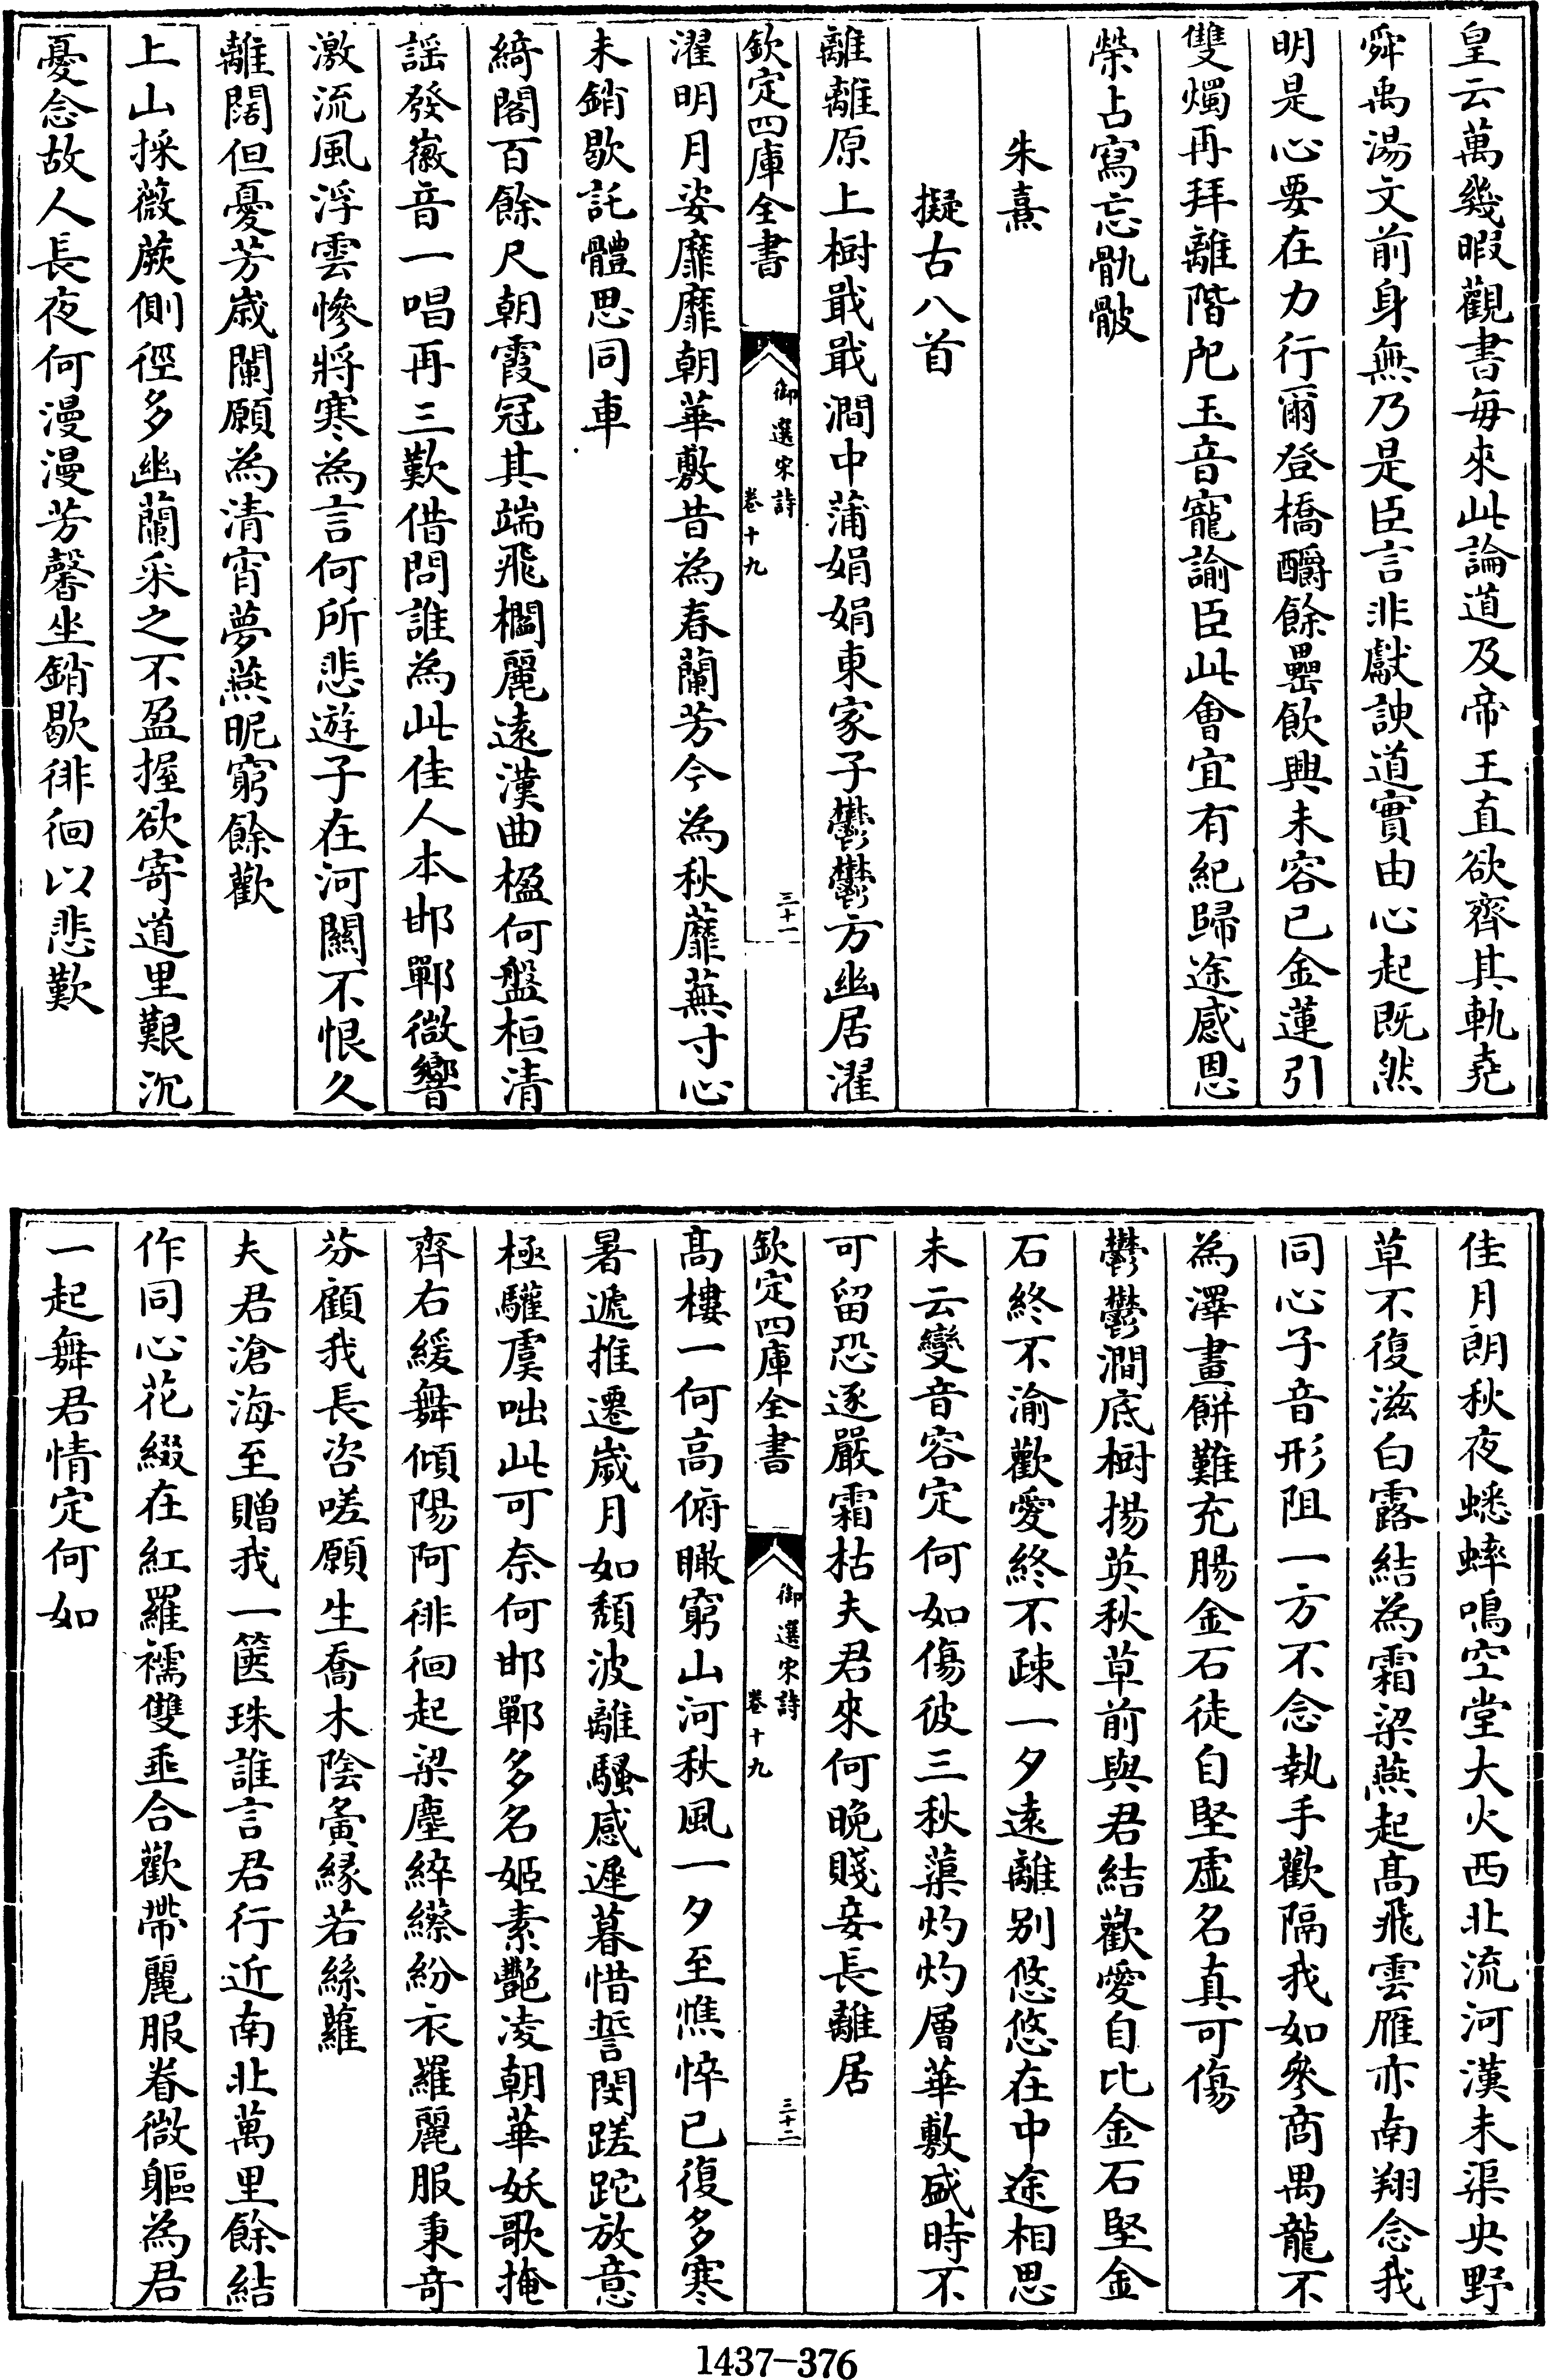 皇云萬幾暇觀書每來此論道及帝王直欲齊其軌堯
舜禹湯文前身無乃是臣言非獻諛道實由心起既然
明是心要在力行爾登橋釂餘罍飲興未容已金蓮引
雙燭再拜離階戺玉音寵諭臣此會宜有紀歸途感恩
榮占寫忘骫骳
朱熹
擬古八首
離離原上樹戢戢澗中蒲娟娟東家子鬱鬱方幽居濯
欽定四庫全書
御選宋詩
卷十九
三十一
濯明月姿靡靡朝華敷昔為春蘭芳今為秋蘼蕪寸心
未銷歇託體思同車
綺閣百餘尺朝霞冠其端飛櫩麗遠漢曲楹何盤桓清
謡發徽音一唱再三歎借問誰為此佳人本邯鄲微響
激流風浮雲慘將寒為言何所悲遊子在河關不恨久
離闊但憂芳歲闌願為清宵夢燕昵窮餘歡
上山採薇蕨側徑多幽蘭采之不盈握欲寄道里艱沉
憂念故人長夜何漫漫芳馨坐銷歇徘徊以悲歎
佳月朗秋夜蟋蟀鳴空堂大火西北流河漢未渠央野
草不復滋白露結為霜梁燕起高飛雲雁亦南翔念我
同心子音形阻一方不念執手歡隔我如參商禺龍不
為澤畫餅難充腸金石徒自堅虛名真可傷
鬱鬱澗底樹揚英秋草前與君結歡愛自比金石堅金
石終不渝歡愛終不疎一夕遠離别悠悠在中途相思
未云變音容定何如傷彼三秋蕖灼灼層華敷盛時不
可留恐逐嚴霜枯夫君來何晚賤妾長離居
欽定四庫全書
御選宋詩
卷十九
三十二
髙樓一何高俯瞰窮山河秋風一夕至憔悴已復多寒
暑遞推遷歲月如頹波離騷感遲暮惜誓閔蹉跎放意
極驩虞咄此可奈何邯鄲多名姬素艷凌朝華妖歌掩
齊右緩舞傾陽阿徘徊起梁塵綷縩紛衣羅麗服秉奇
芬顧我長咨嗟願生喬木陰夤緣若絲蘿
夫君滄海至贈我一篋珠誰言君行近南北萬里餘結
作同心花綴在紅羅襦雙垂合歡帶麗服眷微軀為君
一起舞君情定何如
1437-376